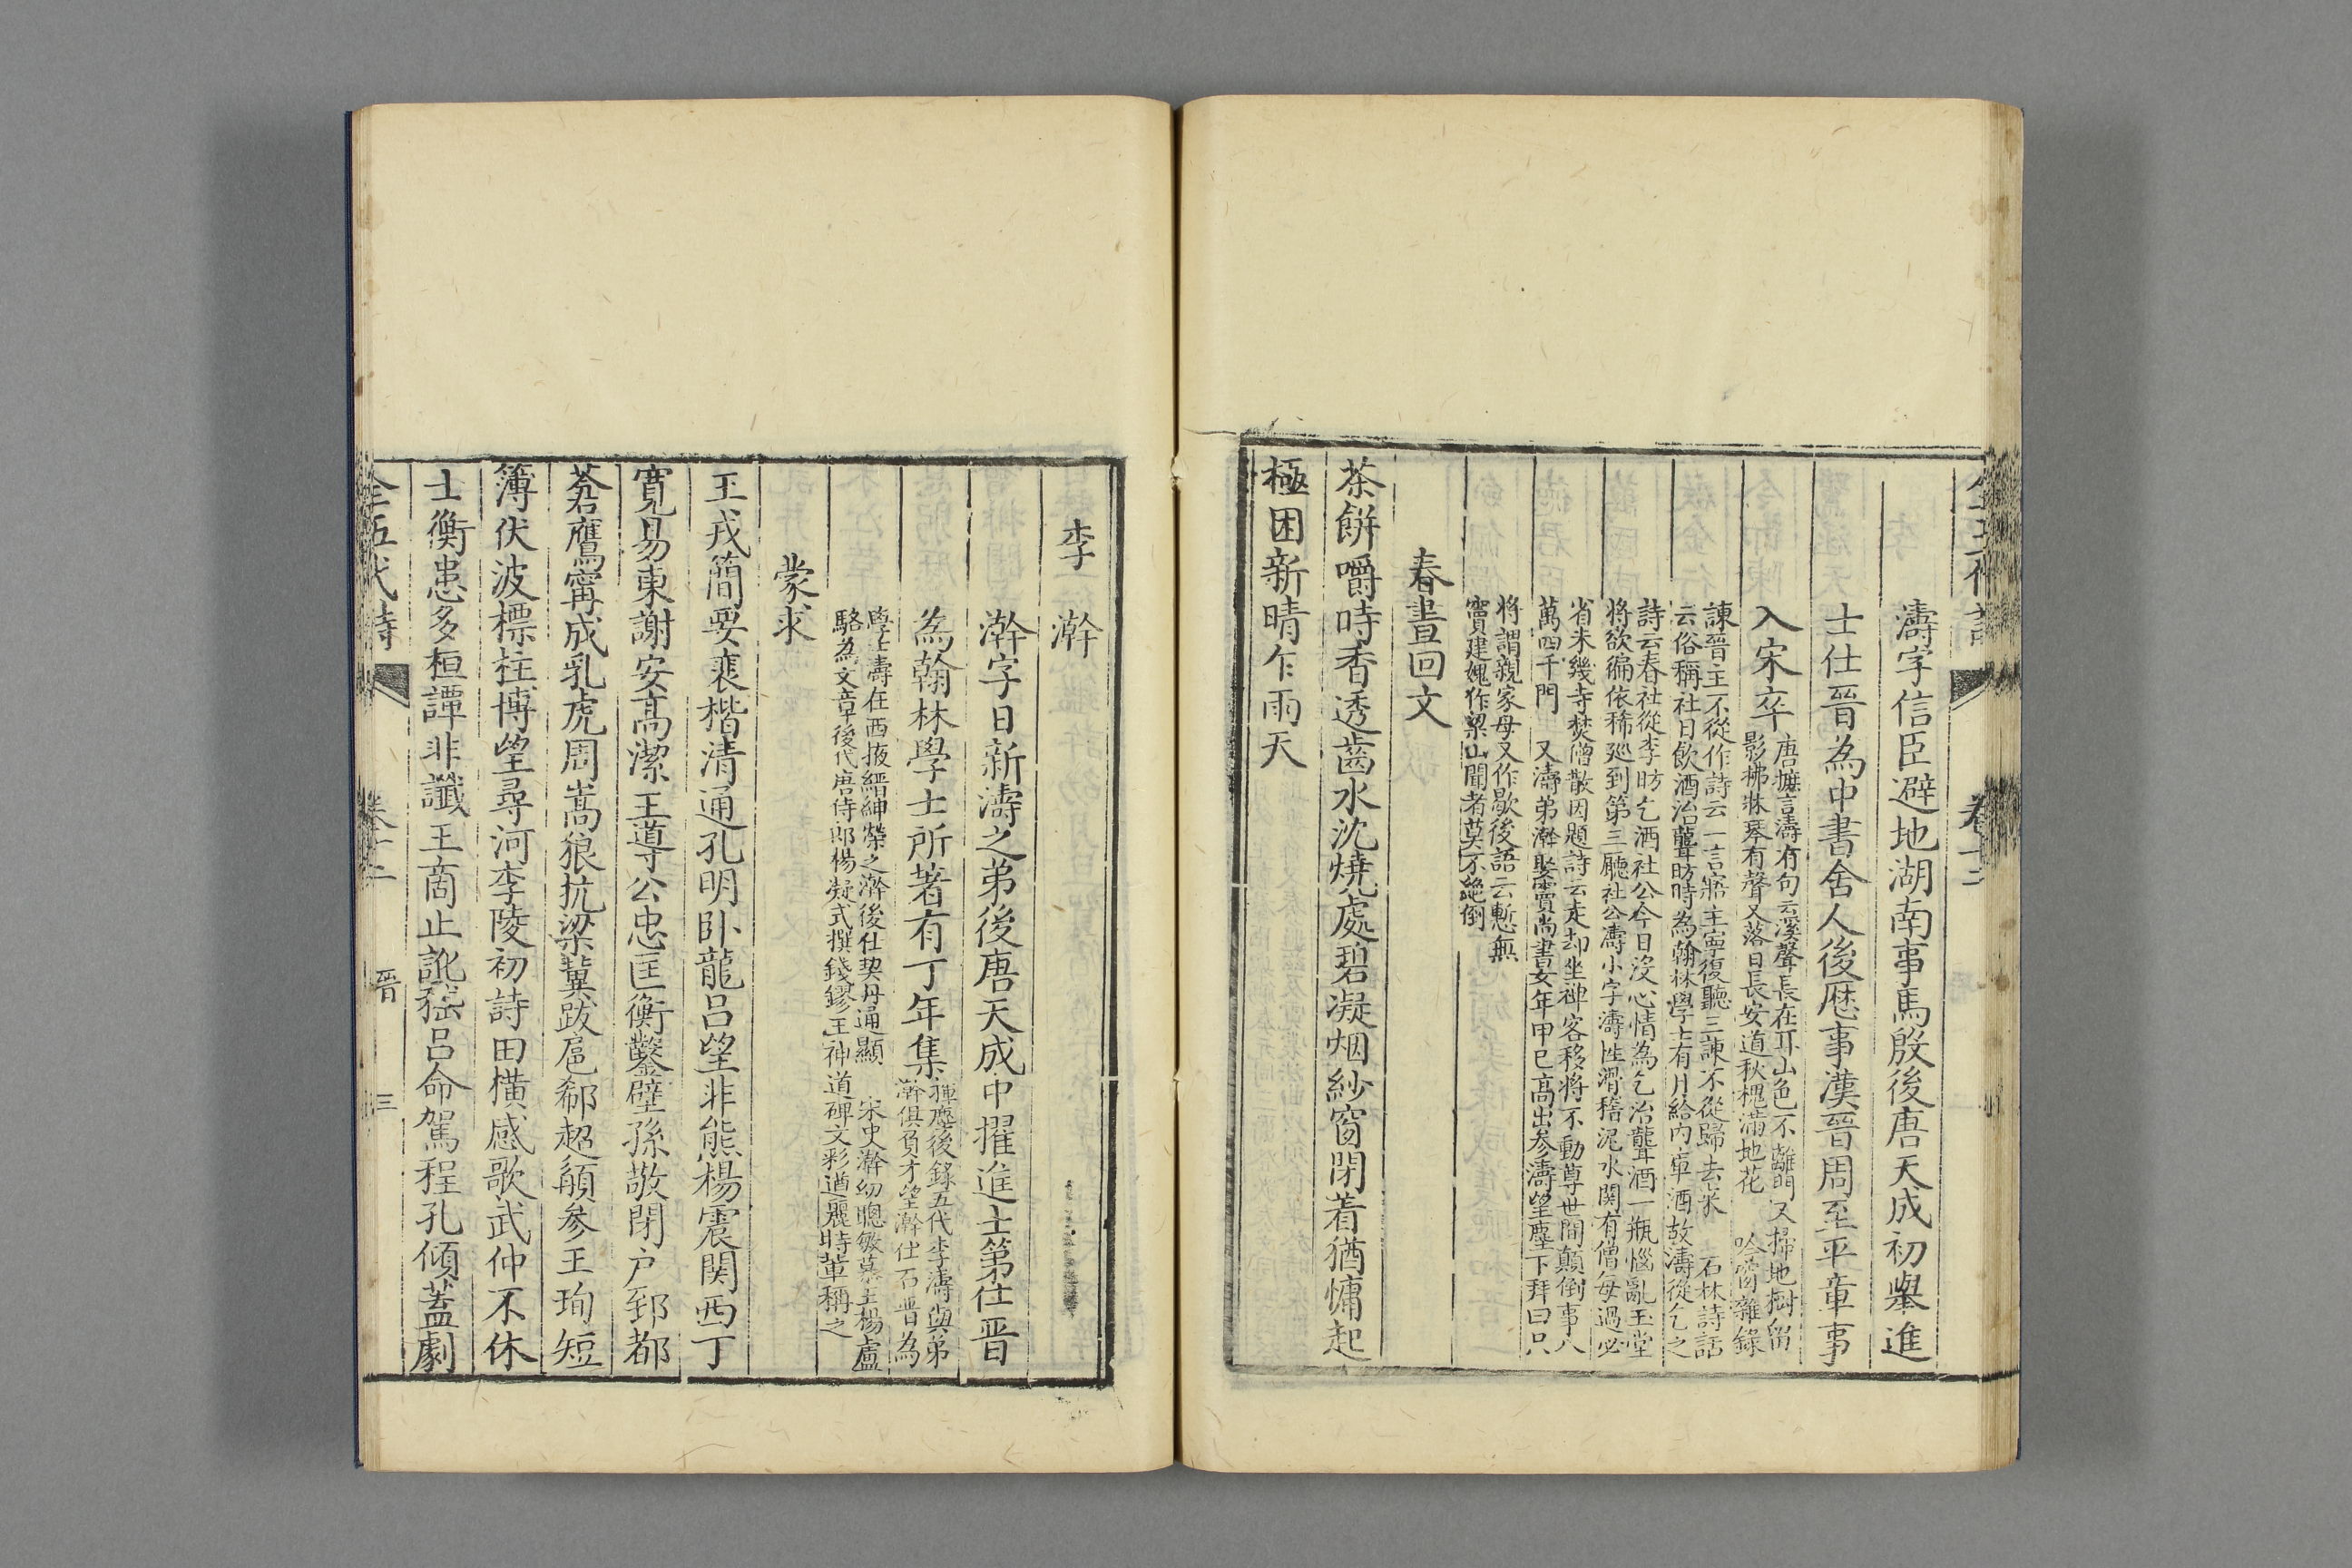 濤字信臣避地湖南事馬殷後唐天成初舉進
士仕晉為中書舍人後歴事漢晉周至平章事
入宋卒
唐摭言濤有句云溪聲長在耳山色不離門又掃地樹留
影拂牀琴有聲又落日長安道秋槐滿地花　吟窗雜錄
諫晉主不從作詩云一言寤主寧復聽三諫不從歸去來　石林詩話
云俗稱社日飲酒治聾昉時為翰林學士有月給內庫酒故濤從乞之
詩云春社從李昉乞酒社公今日没心情為乞治聾酒一瓶惱亂玉堂
將欲徧依稀廵到第三廳社公濤小字濤性滑稽泥水関有僧每過必
省未幾寺焚僧散因題詩云走却坐禪客移將不動尊世間顛倒事八
萬四千門　又濤弟澣娶竇尚書女年甲已高出參濤望塵下拜曰只
將謂親家母又作歇後語云慙無
竇建媿作梁山聞者莫不絶倒
春晝回文
茶餅嚼時香透齒水沈燒處碧凝烟紗窗閉着猶慵起
極困新晴乍雨天
李　澣
澣字日新濤之弟後唐天成中擢進士第仕晋
為翰林學士所著有丁年集
揮麈後錄五代李濤與弟
澣俱負才望澣仕石晉為
學士濤在西掖縉紳榮之澣後仕契丹通顯　宋史澣幼聰敏慕王楊盧
駱為文章後代唐侍郎楊凝式撰錢鏐王神道碑文彩遒麗時輩稱之
蒙求
王戎簡要裴楷清通孔明卧龍呂望非熊楊震関西丁
寛易東謝安高潔王導公忠匡衡鑿壁孫敬閉户郅都
蒼鷹甯成乳虎周嵩狼抗梁冀跋扈郗超䫇參王珣短
簿伏波標柱博望尋河李陵初詩田橫感歌武仲不休
士衡患多桓譚非讖王商止訛嵇呂命駕程孔傾蓋劇
全五代詩　卷十二　晋　三